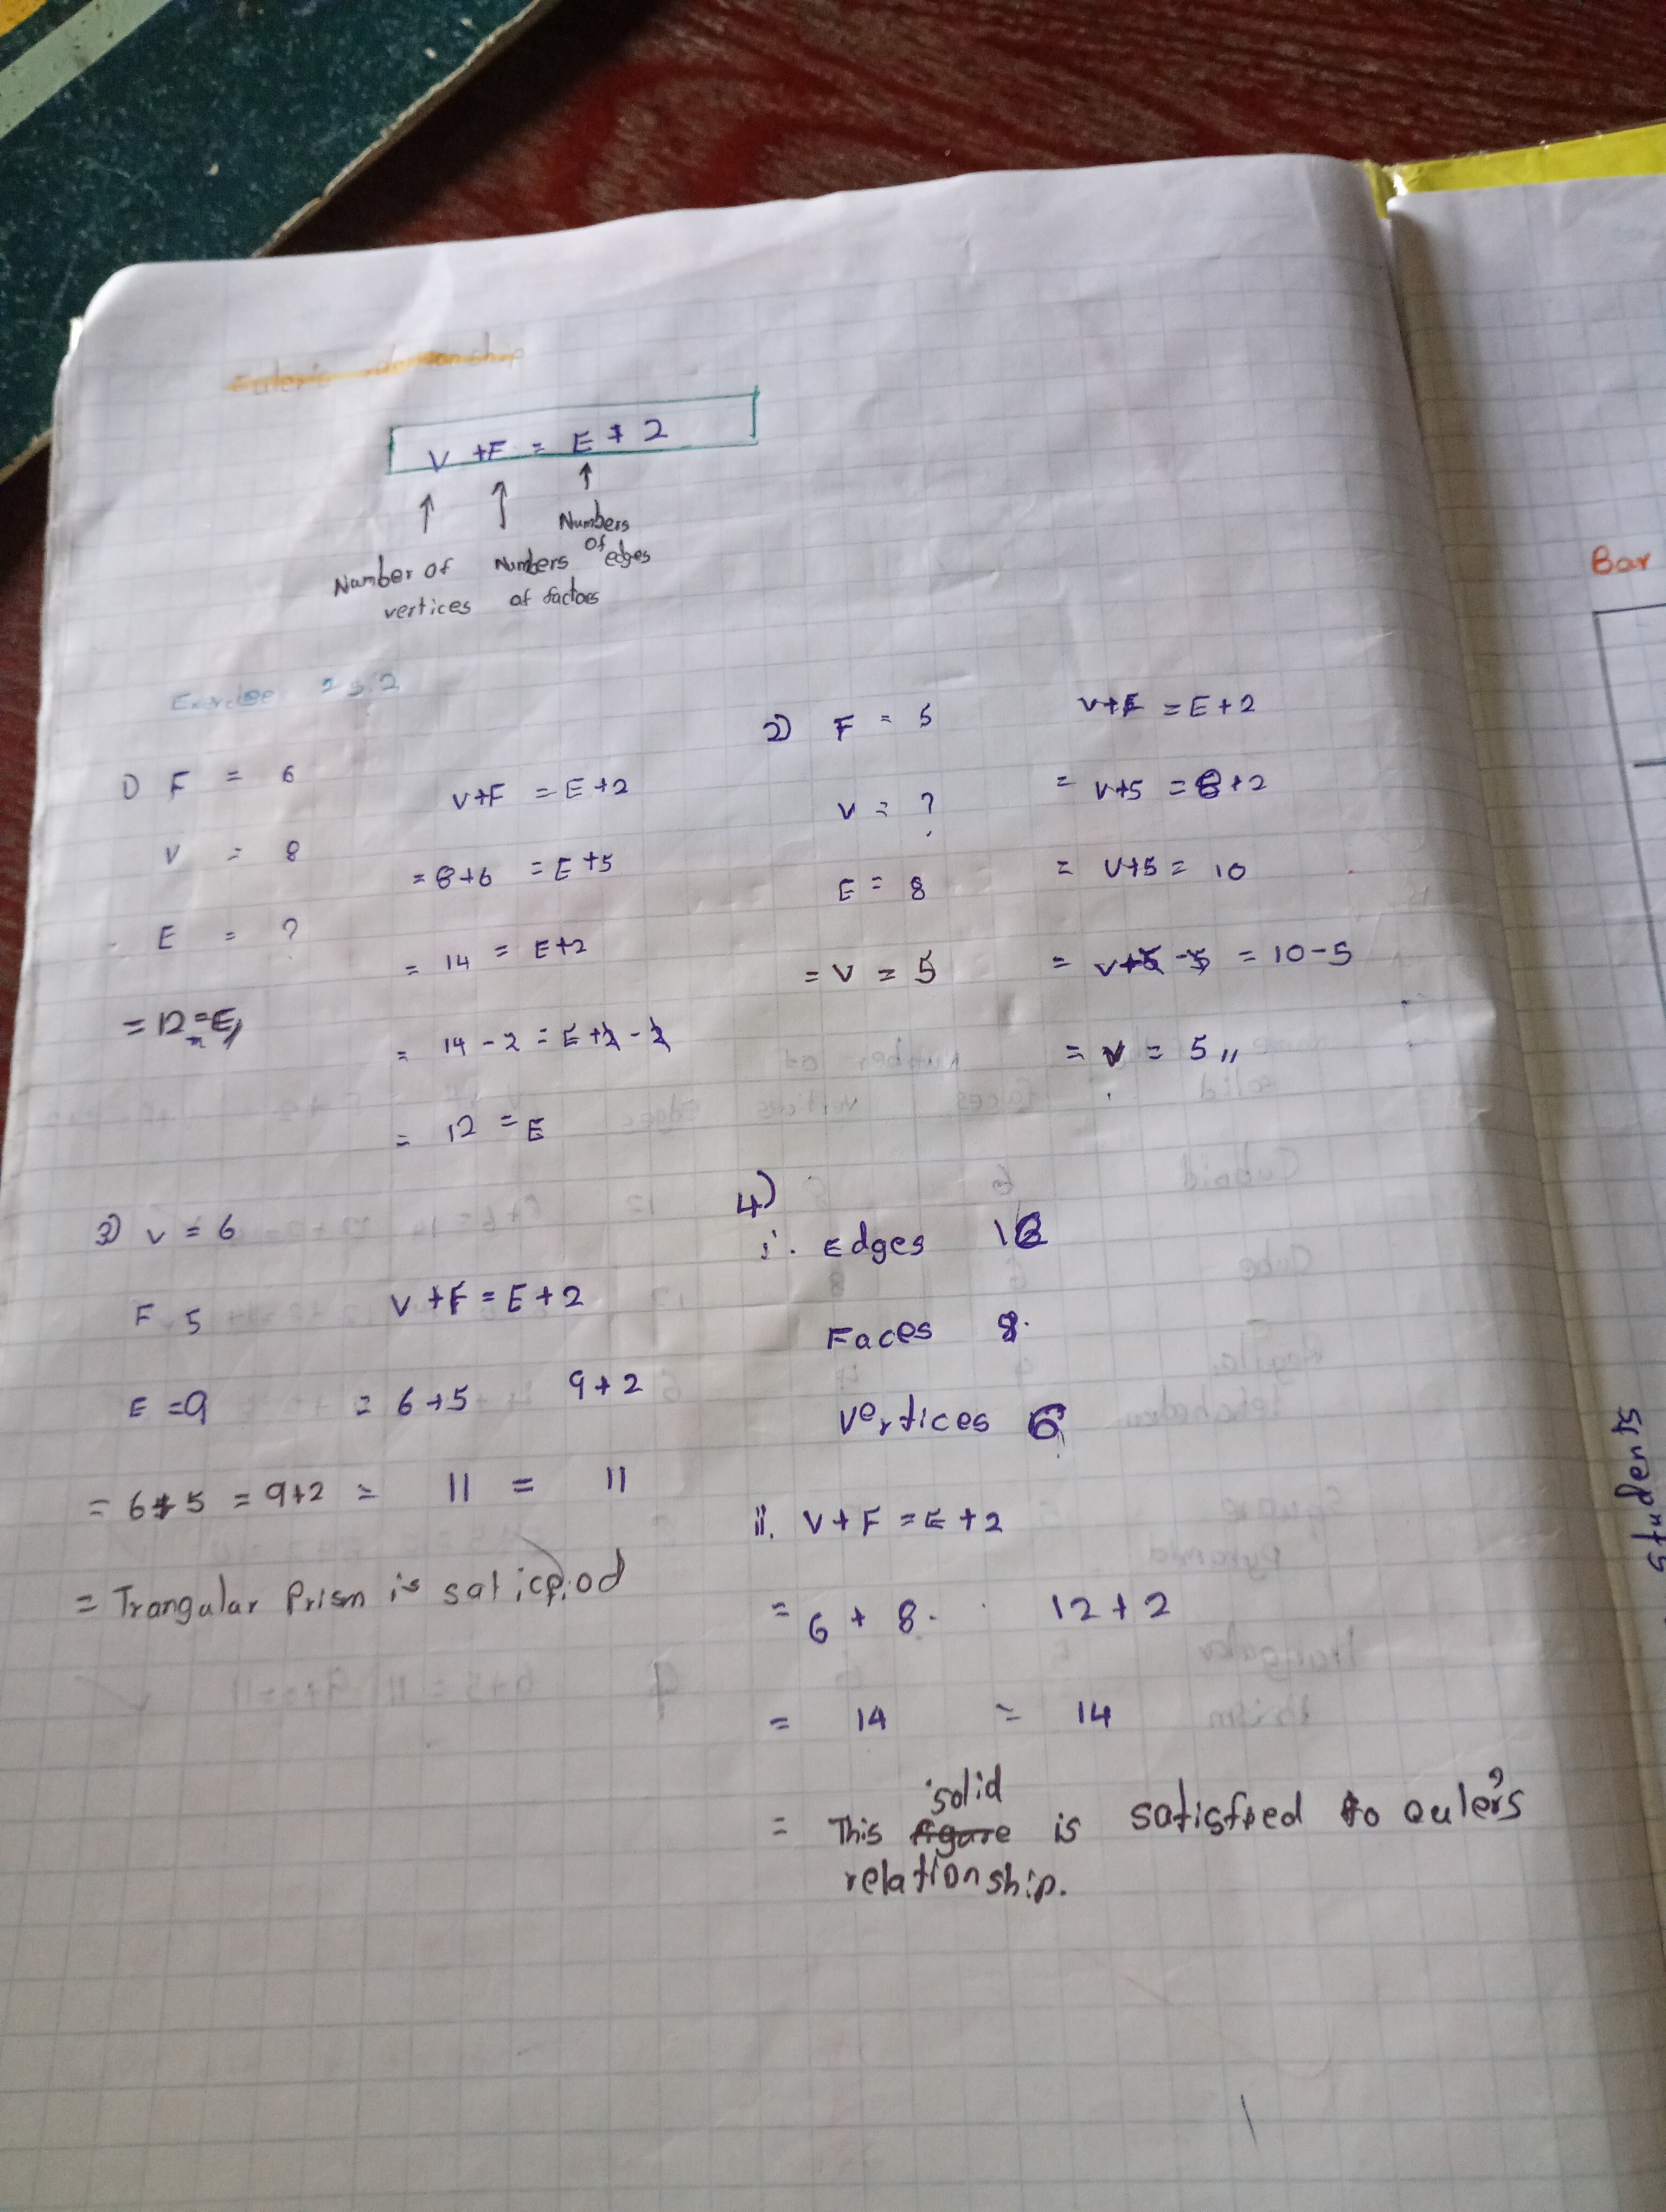 V + F = E + 2
Number of vertices
Numbers of factors
Numbers of edges
Exercise
1) F = 6
V = 8
E = ?
= 12 = E
V+F = E+2
= 8+6 = E+5
= 14 = E+2
= 14 - 2 = E+2-2
= 12 = E
2) F = 5
V = ?
E = 8
= V = 5
V+F = E+2
= V+5 = 8+2
= V+5 = 10
= V+5-5 = 10-5
= V = 5 ,,
3) V = 6
F 5
E = 9
V+F = E+2
= 6+5 9+2
= 6+5 = 9+2 = 11 = 11
= Trangular Prism is
4)
i. Edges 12
Faces 8.
Vertices 6
ii. V+F = E+2
= 6 + 8. 12 + 2
= 14 = 14
solid
= This figure is satisfied to euler's
relationship.
Bar
students